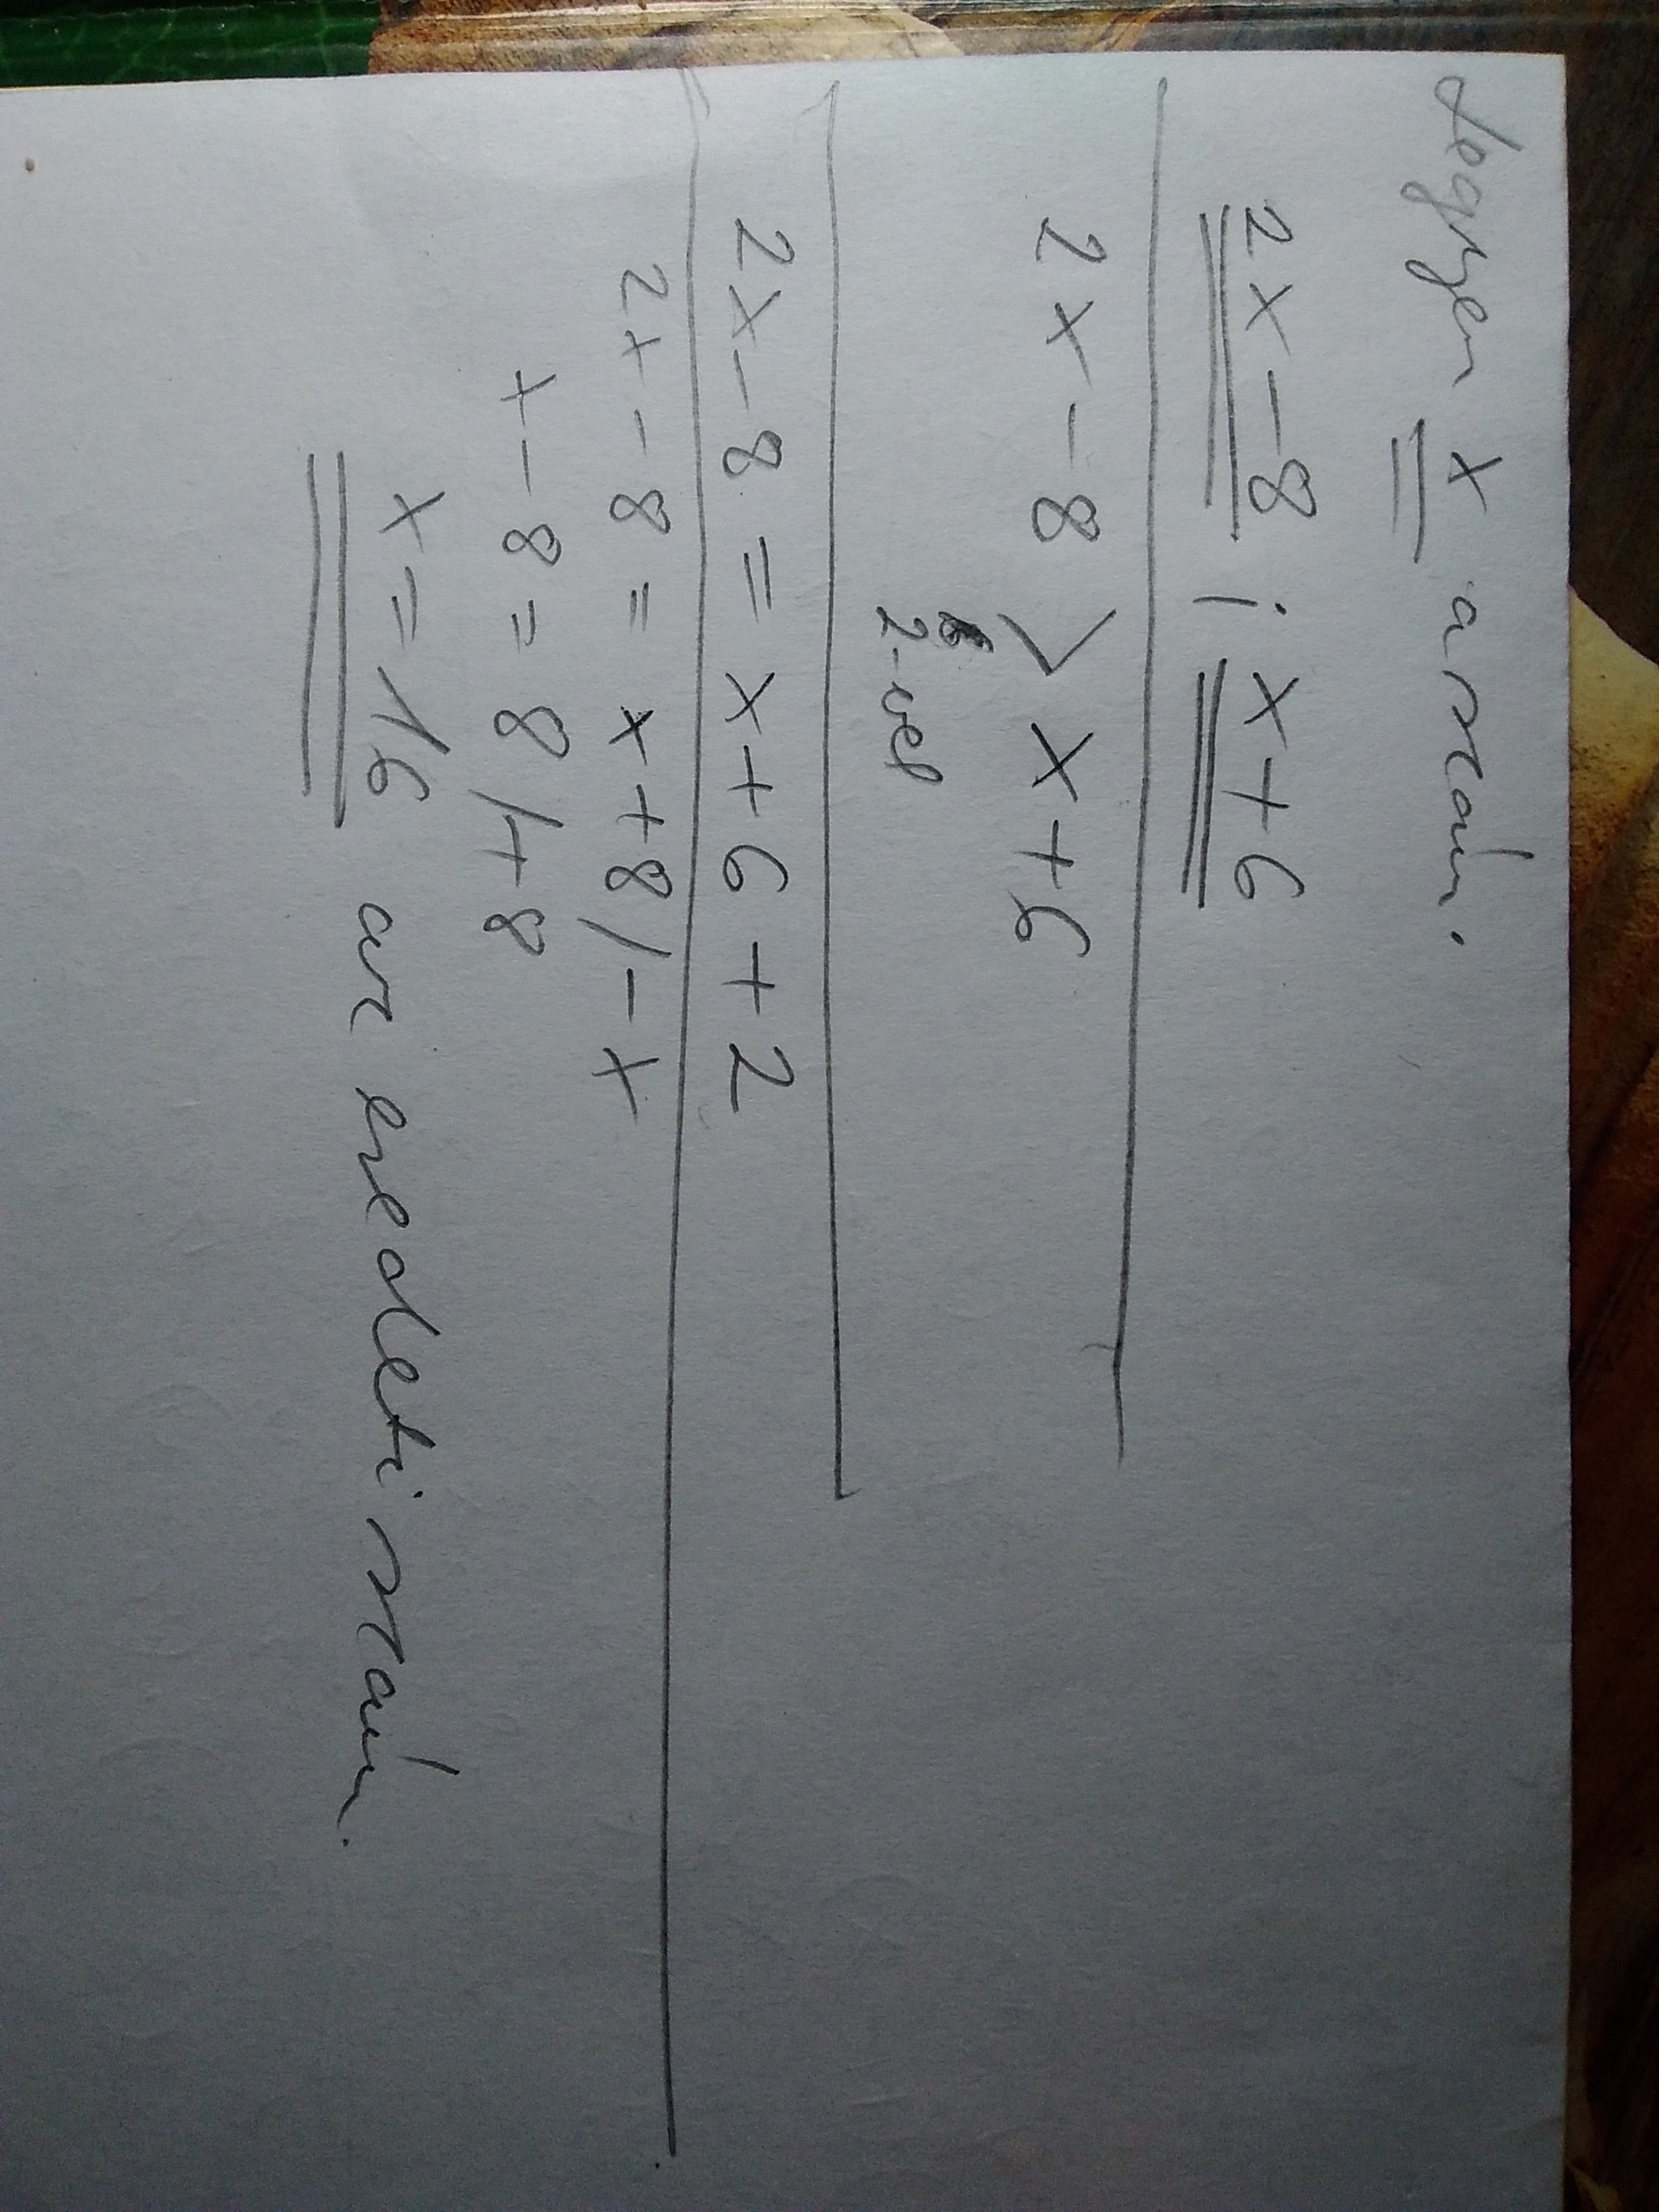 Legyen x a szám.
2x-8 ; x+6
2x-8 > x+6
2-vel
2x-8 = x+6+2
2x-8 = x+8 /-x
x-8 = 8 /+8
x = 16 az eredeti szám.